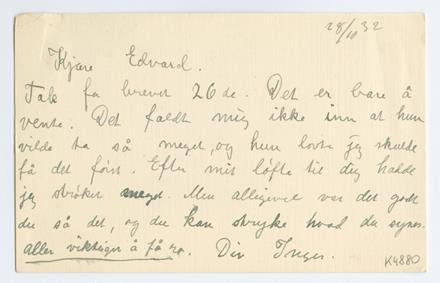 28/11 32
Kjære Edvard.
Takk for brevet 26 de. Det er bare å
vente. Det faldt mig ikke inn at hun
vilde ta så meget, og hun lovte jeg skulde
få det først. Efter mit løfte til dig hadde
jeg strøket meget. Men alligevel var det godt
du så det, og du kan stryke hvad du synes.
Aller viktigst å få ro. Din Inger.
K4880